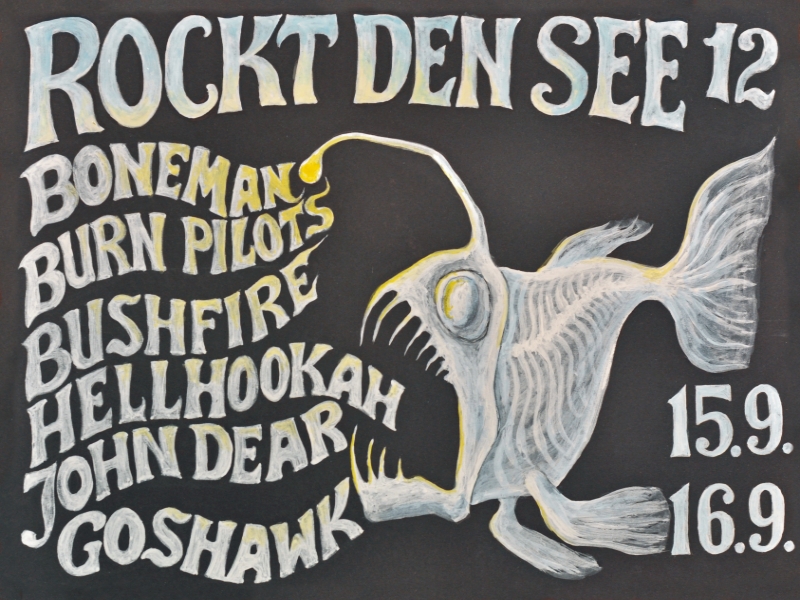 ROCKT DEN SEE 12
BONEMAN
BURN PILOTS
BUSHFIRE
HELLHOOKAH
JOHN DEAR
GOSHAWK
15.9.
16.9.